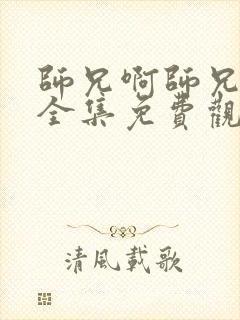 師兄啊師兄
全集免費觀
清風載歌